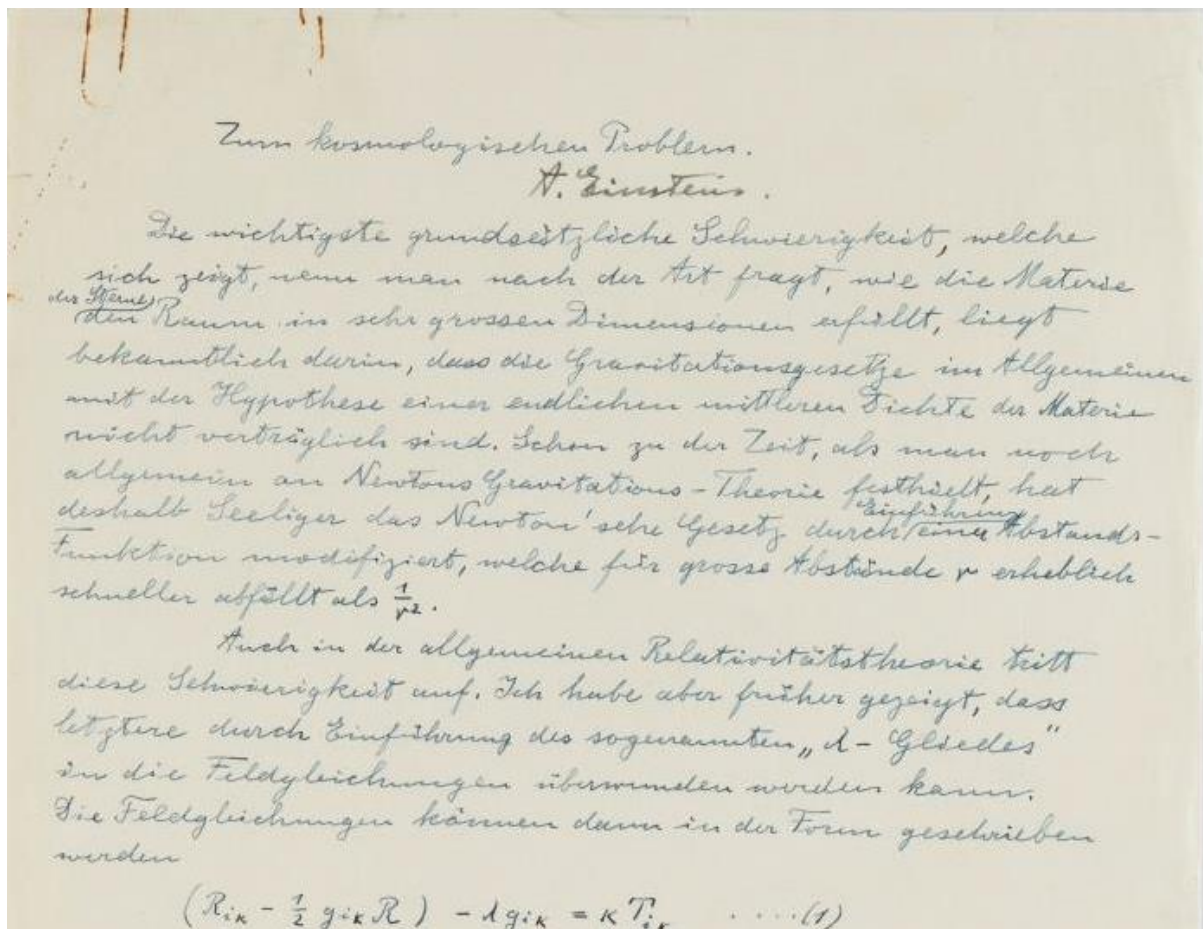 Zum kosmologischen Problem.
A. Einstein.
Die wichtigste grundsätzliche Schwierigkeit, welche
sich zeigt, wenn man nach der Art fragt, wie die Materie
der Sterne
den Raum in sehr grossen Dimensionen erfüllt, liegt
bekanntlich darin, dass die Gravitationsgesetze im Allgemeinen
mit der Hypothese einer endlichen mittleren Dichte der Materie
nicht verträglich sind. Schon zu der Zeit, als man noch
allgemein an Newtons Gravitations-Theorie festhielt, hat
Einführung
deshalb Seeliger das Newton'sche Gesetz durch einer Abstands-
Funktion modifiziert, welche für grosse Abstände r erheblich
schneller abfällt als 1/r².
Auch in der allgemeinen Relativitätstheorie tritt
diese Schwierigkeit auf. Ich habe aber früher gezeigt, dass
letztere durch Einführung des sogenannten „λ-Gliedes"
in die Feldgleichungen überwunden werden kann.
Die Feldgleichungen können dann in der Form geschrieben
werden
(R_ik - 1/2 g_ik R) - λ g_ik = κ T_ik ....(1)